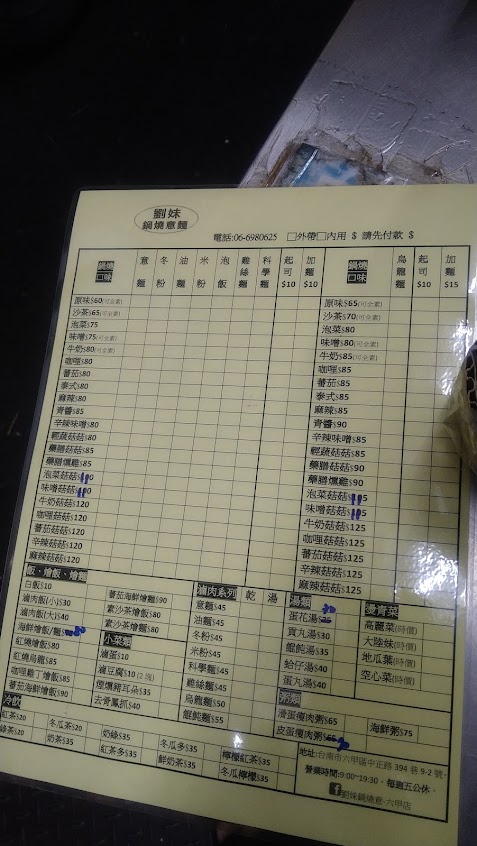 劉妹
鍋燒意麵
電話:06-6980625 □外帶□內用 $ 請先付款 $
鍋燒口味 意麵 冬粉 油麵 米粉 泡飯 雞絲麵 科學麵 起司$10 加麵$10
原味$60(可全素)
沙茶$65(可全素)
泡菜$75
味噌$75(可全素)
牛奶$80(可全素)
咖哩$80
番茄$80
泰式$80
麻辣$80
青醬$85
辛辣味噌$80
輕蔬菇菇$80
藥膳菇菇$85
藥膳燻雞$85
泡菜菇菇110
味噌菇菇110
牛奶菇菇$120
咖哩菇菇$120
番茄菇菇$120
麻辣菇菇$120
鍋燒口味 烏龍麵 起司$10 加麵$15
原味$65(可全素)
沙茶$70(可全素)
泡菜$80
味噌$80(可全素)
牛奶$85(可全素)
咖哩$85
蕃茄$85
泰式$85
麻辣$85
青醬$90
辛辣味噌$85
輕蔬菇菇$85
藥膳菇菇$90
藥膳燻雞$90
泡菜菇菇115
味噌菇菇115
牛奶菇菇$125
咖哩菇菇$125
蕃茄菇菇$125
麻辣菇菇$125
飯、燴飯、燴麵
白飯$10
滷肉飯(小)$30
滷肉飯(大)$40
海鮮燴飯/麵
紅燒燴飯$80
紅燒烏龍$85
咖哩雞丁燴飯$85
蕃茄海鮮燴飯$90
蕃茄海鮮燴麵$90
素沙茶燴飯$80
素沙茶燴麵$80
小菜類
滷蛋$10
滷豆腐$10 (2塊)
煙燻豬耳朵$35
去骨鳳抓$40
滷肉系列 乾 湯
意麵$45
油麵$45
冬粉$45
米粉$45
科學麵$45
雞絲麵$45
烏龍麵$50
餛飩麵$55
湯類
蛋花湯
貢丸湯$30
餛飩湯$35
蛤仔湯$40
蛋丸湯$40
燙青菜
高麗菜(時價)
大陸妹(時價)
地瓜葉(時價)
空心菜(時價)
粥類
滑蛋瘦肉粥$65
皮蛋瘦肉粥
海鮮粥$75
冷飲
紅茶$20 冬瓜茶$20 奶綠$35 冬瓜多$35 檸檬紅茶$35
綠茶$20 奶茶$35 紅茶多$35 鮮奶茶$35 冬瓜檸檬$35
地址:台南市六甲區中正路 394 巷 9-2 號。
營業時間:9:00~19:30。每週五公休。
劉妹鍋燒意-六甲店